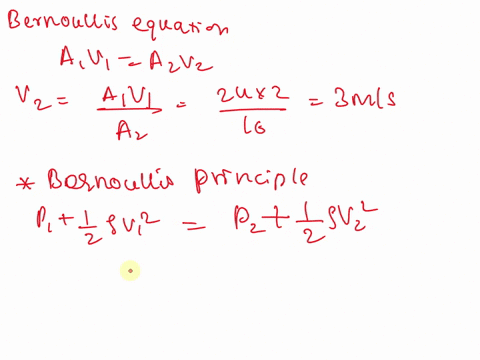 Bernoullis equation
A₁V₁ = A₂V₂
V₂ = A₁V₁/A₂ = 24x2/16 = 3m/s
* Bernoullis principle
P₁ + 1/2 ρV₁² = P₂ + 1/2 ρV₂²